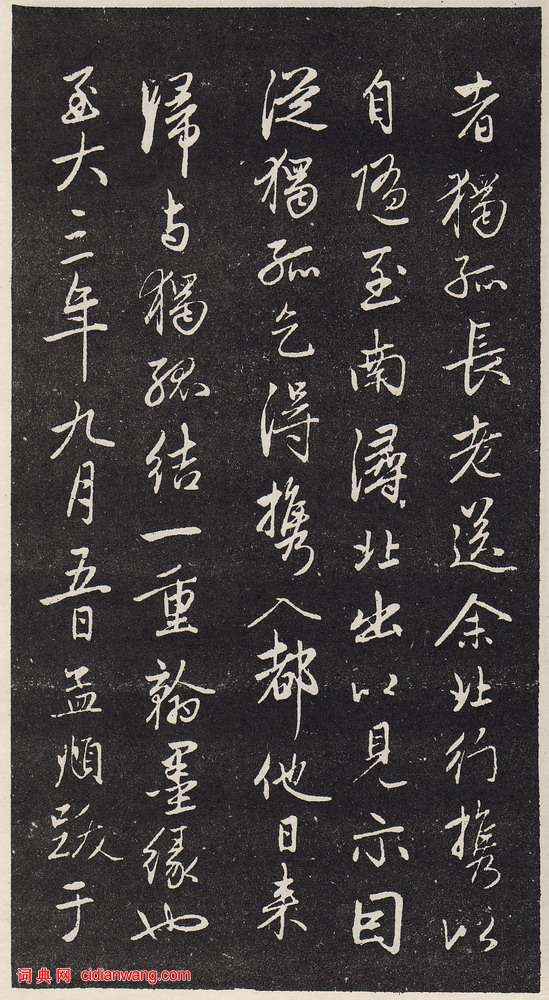 者獨孤長老送余北行攜以
自隨至南潯北出以見示因
從獨孤乞得攜入都他日來
歸与獨孤結一重翰墨緣也
至大三年九月五日孟頫跋于
词典网 cidianwang.com